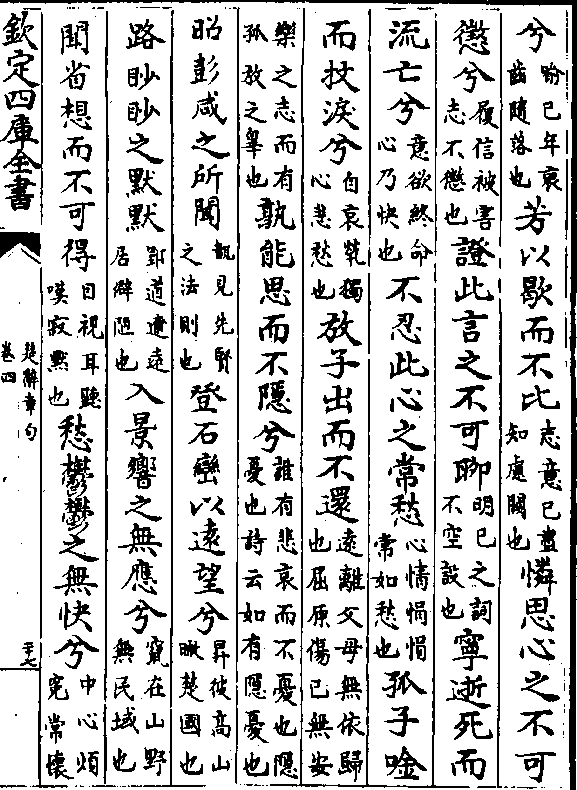 兮喻已年衰齒隨落也芳以歇而不比志意已盡知慮闕也憐思心之不可
懲兮履信被害志不懲也證此言之不可聊明已之詞不空設也寧逝死而
流亡兮意欲終命心乃快也不忍此心之常愁心情悁悁常如愁也孤子唫
而抆淚兮自哀煢獨心悲愁也放子出而不還遠離父母無依歸也屈原傷已無安
樂之志而有孤放之辠也孰能思而不隱兮誰有悲哀而不憂也隱憂也詩云如有隱憂也
昭彭咸之所聞覩見先賢之法則也登石巒以遠望兮昇彼高山瞰楚國也
路眇眇之默默郢道遼遠居僻陋也入景響之無應兮竄在山野無民域也
聞省想而不可得目視耳聽嘆寂默也愁鬱鬱之無快兮中心煩寃常懷
欽定四庫全書
楚辭章句
卷四
二十七